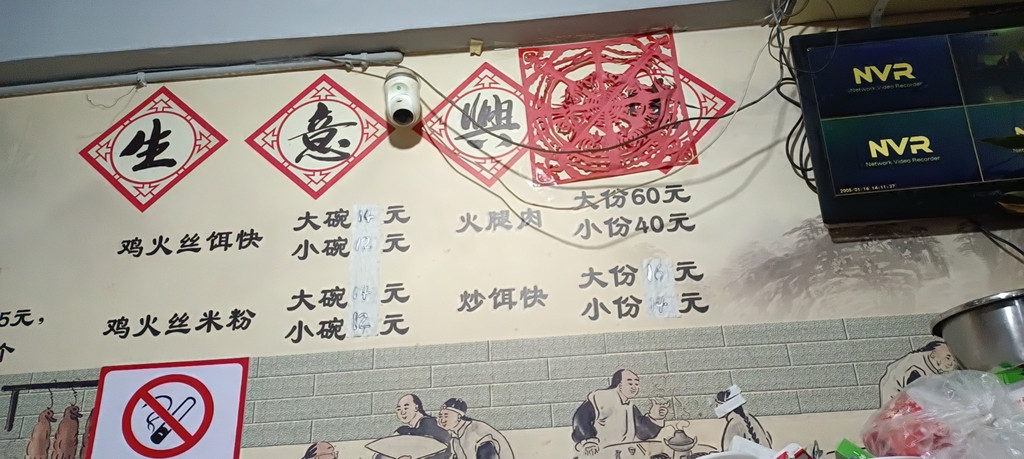 生意興
鸡火丝饵快
大碗 元
小碗 元
火腿肉
大份60元
小份40元
5元，
个
鸡火丝米粉
大碗 元
小碗 元
炒饵快
大份 元
小份 元
NVR
Network Video Recorder
NVR
Network Video Recorder